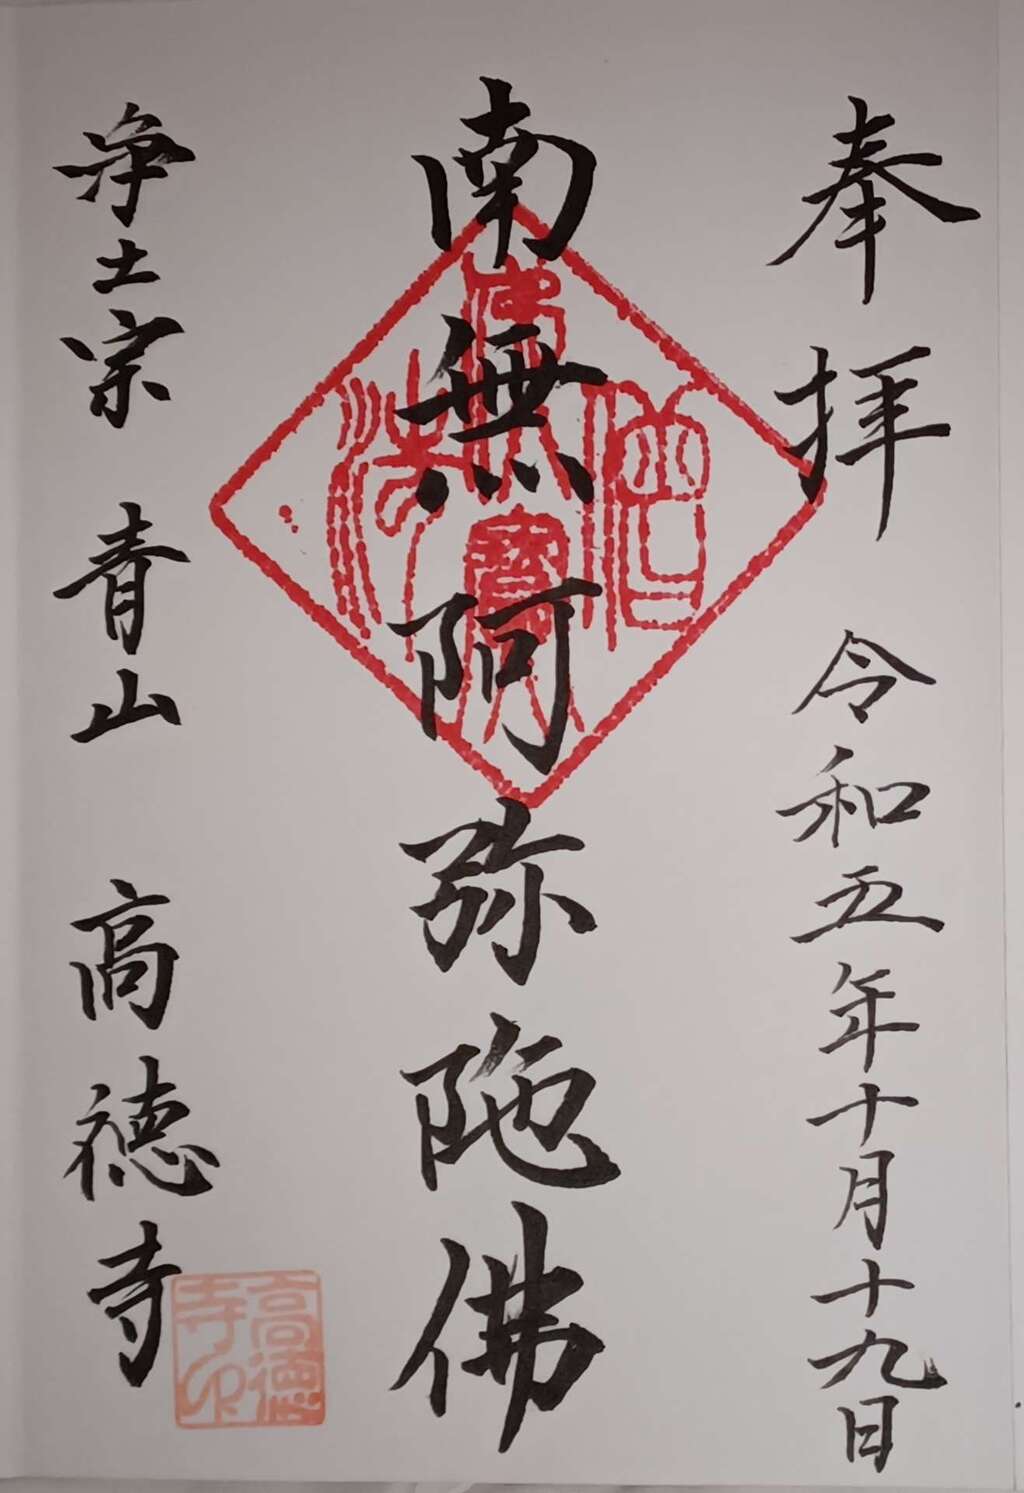 奉拝 令和五年十月十九日
南無阿弥陀佛
浄土宗 青山 高徳寺
佛法僧寶
高徳寺印